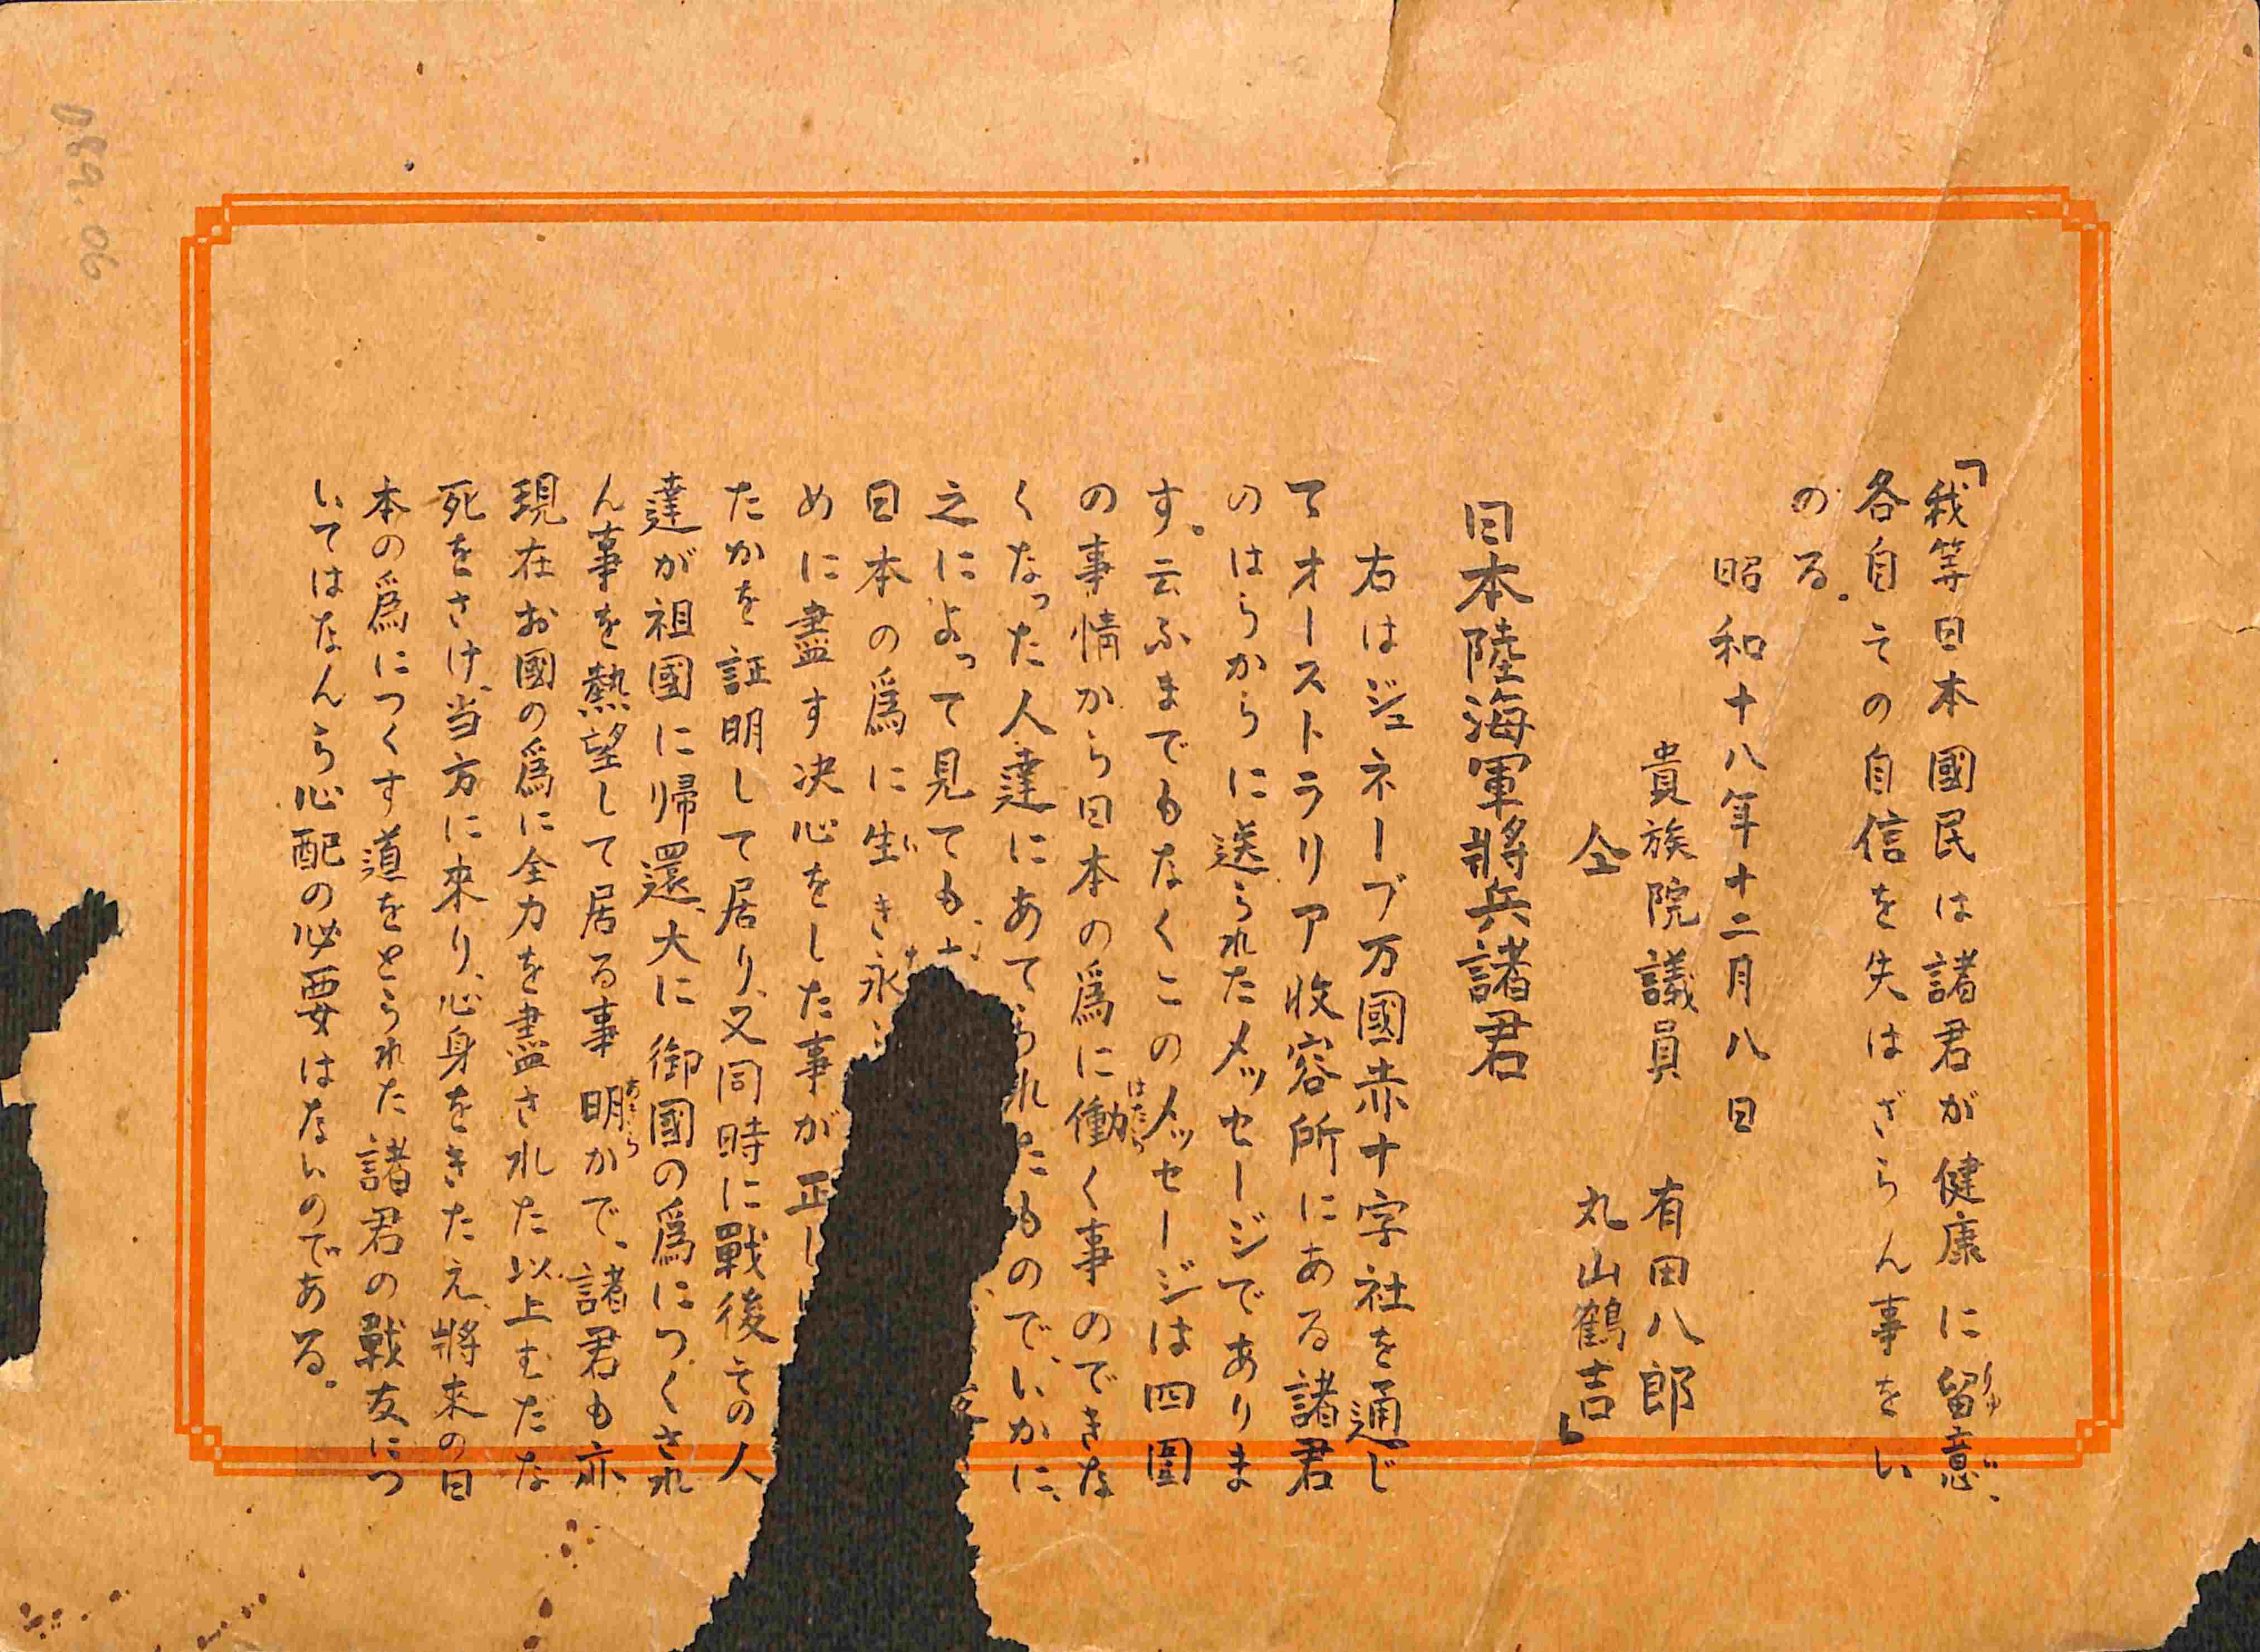 「我等日本國民は諸君が健康に留意、
各自その自信を失はざらん事をい
のる。
昭和十八年十二月八日
貴族院議員 有田八郎
仝 丸山鶴吉」
日本陸海軍將兵諸君
右はジュネーブ万國赤十字社を通じ
てオーストラリア收容所にある諸君
のはらからに送られたメッセージでありま
す。云ふまでもなくこのメッセージは四圍
の事情から日本の爲に働く事のできな
くなった人達にあてられたもので、いかに、
之によって見ても、
日本の爲に生き永
めに盡す決心をした事が正し
たかを証明して居り、又同時に戰後その人
達が祖國に帰還、大に御國の爲につくされ
ん事を熱望して居る事明かで、諸君も亦
現在お國の爲に全力を盡された以上むだな
死をさけ、当方に來り、心身をきたえ、將來の日
本の爲につくす道をとられた諸君の戰友につ
いてはなんら心配の必要はないのである。
D89.06